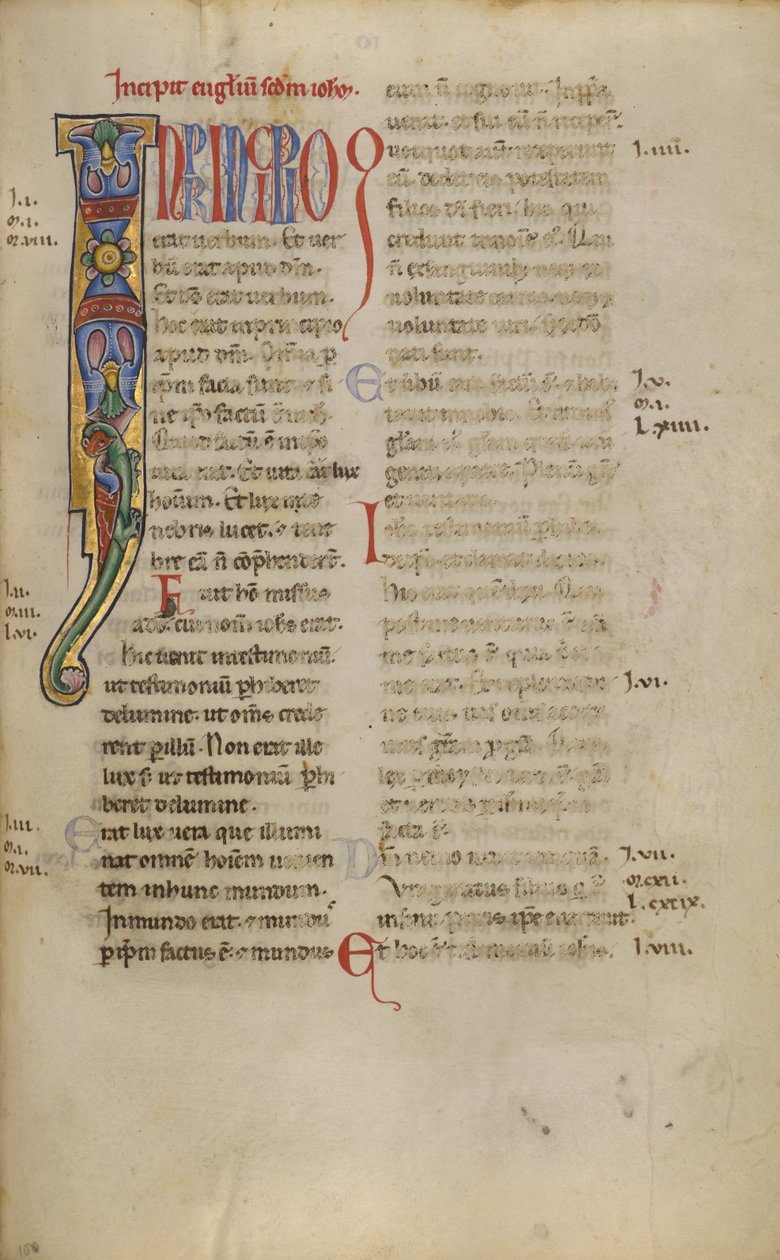 Incipit eugłiū scdm iohm.
IN PRINCIPIO
erat uerbum. Et uer
bū erat apud dm̄.
Et ds̄ erat uerbum.
Hoc erat in principio
apud dm̄. Omīa p
ipm̄ facta sunt. ⁊ si
ne ip̄o factū ē nich
Quod factū ē in ip̄o
uita erat. Et uita erat lux
hoīum. Et lux in te
nebris lucet. ⁊ tene
bre eā n̄ cōp̄hendert̄.
Fuit hō missus
a dō. cui nom̄ iohs erat.
Hic uenit in testimoniū.
ut testimoniū phiberet
de lumine. ut om̄s crede
rent p illū. Non erat ille
lux s; ut testimoniū phi
beret de lumine.
Erat lux uera que illumi
nat omnē hoīem uenien
tem in hunc mundum.
In mundo erat. ⁊ mundū
p ipm̄ factus ē. ⁊ mundus
eum n̄ cognouit. In pp̄a
uenit. et sui eū n̄ recepert̄.
quotquot aut̄ receperunt
eū. dedit eis potestatem
filios dī fieri. his qui
credunt in noīe eī. Qui
n̄ ex sanguinib; neq; ex
uoluntate carnis neq; ex
uoluntate uiri. sed ex dō
nati sunt.
Et ūbū caro factū ē. ⁊ hab
tauit in nobis. Et uidimꝰ
głam eī głam quasi uni
geniti a patre. Plenū gr̄e
et ueritate.
Iohs testimoniū phibet
de ip̄o. et clamat dicens.
Hic erat quē dixi. Qui
post me uenturus ē. an̄
me f̄ctus ē. quia p̄or
me erat. Et de plenitudine
ne eius. nos om̄s accepi
mus gr̄am p gr̄a. Quia
lex p moysen data ē. gr̄a
et ueritas p ih̄m xp̄m
f̄cta ē.
Dm̄ nemo uidit umquā.
Unigenitus filius q̄ ē
in sinu patris ip̄e enarrauit.
Et hoc ē testimoniū iohis.
J.i.
m.i.
m.viii.
J.ii.
m.iii.
l.vi.
J.iii.
m.i.
m.vii.
J.iiii.
J.v.
m.i.
l.xiiii.
J.vi.
J.vii.
m.cxii.
l.cxix.
J.viii.
100